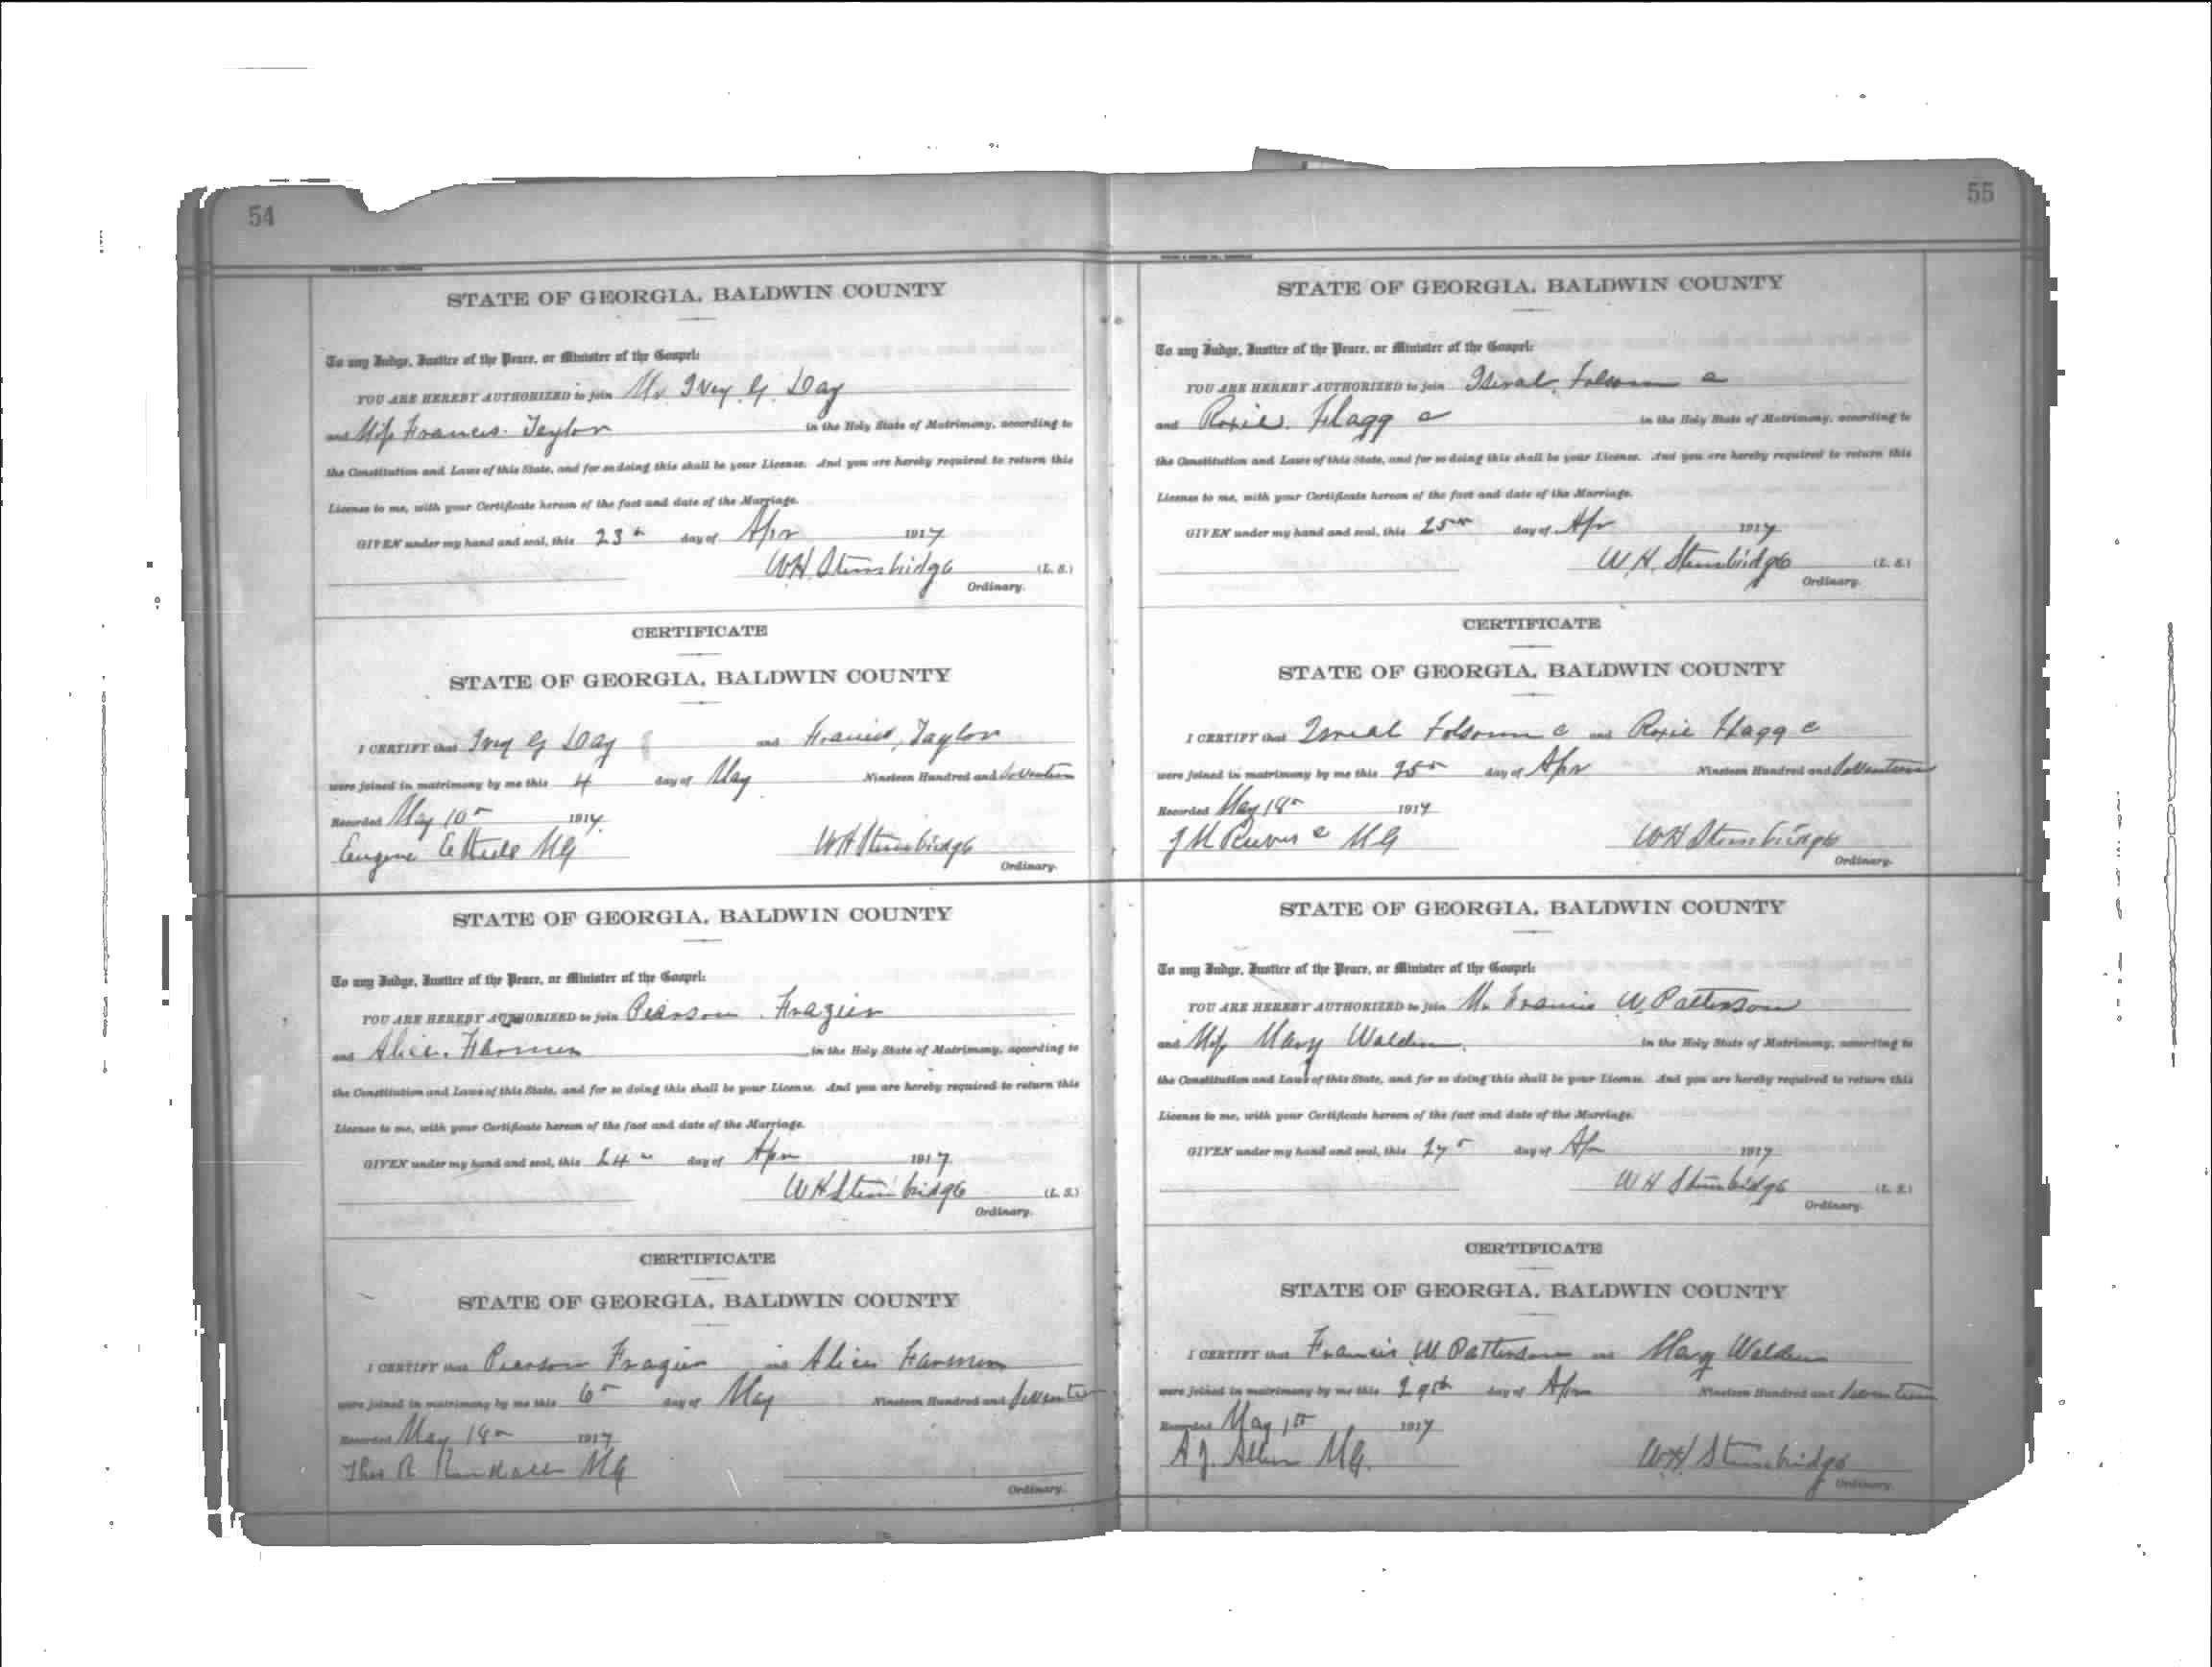 54
STATE OF GEORGIA, BALDWIN COUNTY
To any Judge, Justice of the Peace, or Minister of the Gospel:
YOU ARE HEREBY AUTHORIZED to join Mr Ivey G. Day
and Miss Francis Taylor in the Holy State of Matrimony, according to
the Constitution and Laws of this State, and for so doing this shall be your License. And you are hereby required to return this
License to me, with your Certificate hereon of the fact and date of the Marriage.
GIVEN under my hand and seal, this 23 day of Apr 1917
W.H. Stembridge (L. S.)
Ordinary.
CERTIFICATE
STATE OF GEORGIA, BALDWIN COUNTY
I CERTIFY that Ivey G Day and Francis Taylor
were joined in matrimony by me this 4 day of May Nineteen Hundred and Seventeen
Recorded May 10 1917
Eugene MG WH Stembridge
Ordinary.
STATE OF GEORGIA, BALDWIN COUNTY
To any Judge, Justice of the Peace, or Minister of the Gospel:
YOU ARE HEREBY AUTHORIZED to join Pearson Frazier
and Alice in the Holy State of Matrimony, according to
the Constitution and Laws of this State, and for so doing this shall be your License. And you are hereby required to return this
License to me, with your Certificate hereon of the fact and date of the Marriage.
GIVEN under my hand and seal, this 24 day of Apr 1917
WH Stembridge (L. S.)
Ordinary.
CERTIFICATE
STATE OF GEORGIA, BALDWIN COUNTY
I CERTIFY that Pearson Frazier and Alice
were joined in matrimony by me this 6 day of May Nineteen Hundred and
Recorded May 18 1917
Thos R MG
Ordinary.
55
STATE OF GEORGIA, BALDWIN COUNTY
To any Judge, Justice of the Peace, or Minister of the Gospel:
YOU ARE HEREBY AUTHORIZED to join Folsom c
and Roxie Flagg c in the Holy State of Matrimony, according to
the Constitution and Laws of this State, and for so doing this shall be your License. And you are hereby required to return this
License to me, with your Certificate hereon of the fact and date of the Marriage.
GIVEN under my hand and seal, this 25 day of Apr 1917
W.H. Stembridge (L. S.)
Ordinary.
CERTIFICATE
STATE OF GEORGIA, BALDWIN COUNTY
I CERTIFY that Folsom c and Roxie Flagg c
were joined in matrimony by me this 25 day of Apr Nineteen Hundred and Seventeen
Recorded May 18 1917
J M c MG WH Stembridge
Ordinary.
STATE OF GEORGIA, BALDWIN COUNTY
To any Judge, Justice of the Peace, or Minister of the Gospel:
YOU ARE HEREBY AUTHORIZED to join Mr Francis W. Patterson
and Miss Mary Walden in the Holy State of Matrimony, according to
the Constitution and Laws of this State, and for so doing this shall be your License. And you are hereby required to return this
License to me, with your Certificate hereon of the fact and date of the Marriage.
GIVEN under my hand and seal, this 27 day of Apr 1917
WH Stembridge (L. S.)
Ordinary.
CERTIFICATE
STATE OF GEORGIA, BALDWIN COUNTY
I CERTIFY that Francis W. Patterson and Mary Walden
were joined in matrimony by me this 29th day of Apr Nineteen Hundred and Seventeen
Recorded May 1st 1917
A J. Allen MG. WH Stembridge
Ordinary.